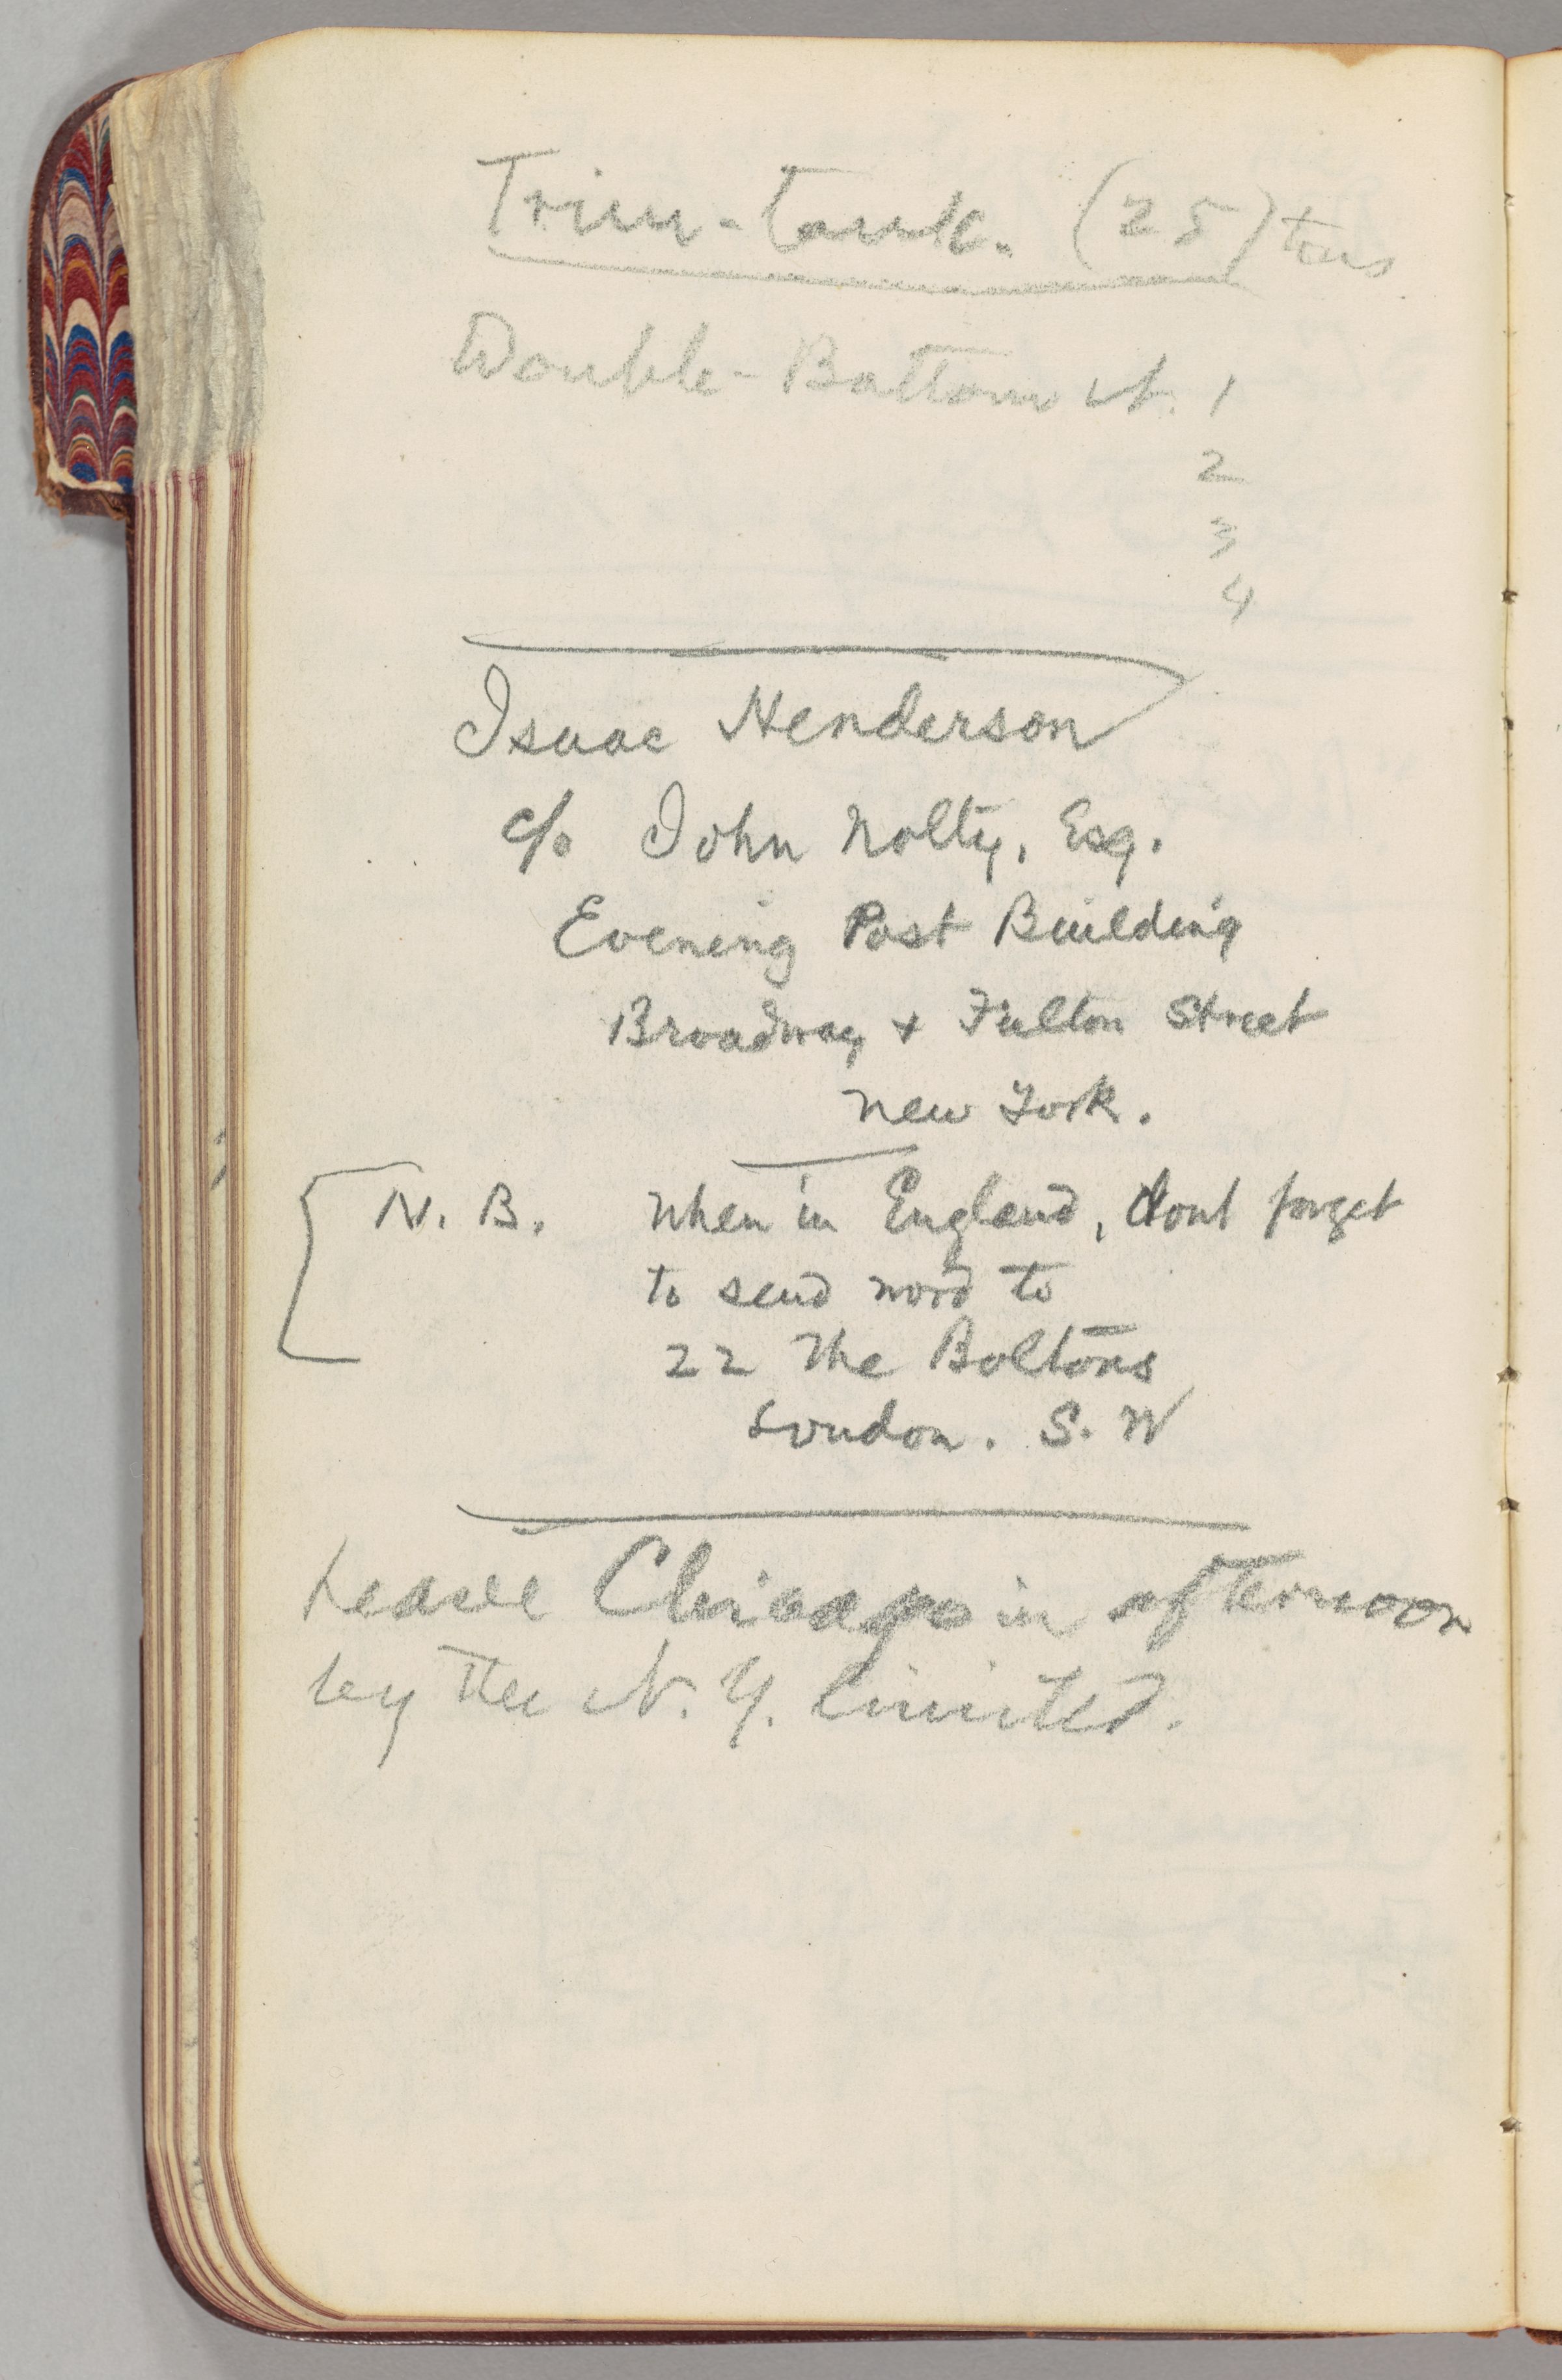 Trim-tank. (25) tons
Double-Bottom N. 1
2
3
4
Isaac Henderson
c/o John Nolty, Esq.
Evening Post Building
Broadway + Fulton Street
New York.
N. B. When in England, dont forget
to send word to
22 The Boltons
London. S. W
Leave Chicago in afternoon
by the N. Y. limited.